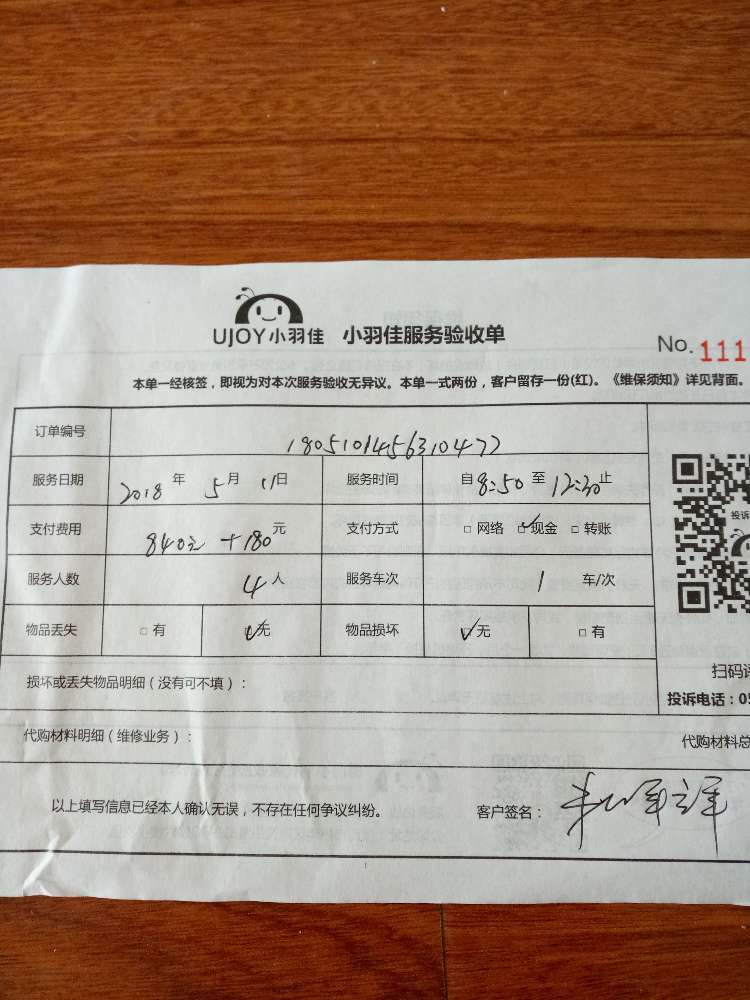 UJOY小羽佳 小羽佳服务验收单
No. 111
本单一经核签，即视为对本次服务验收无异议。本单一式两份，客户留存一份(红)。《维保须知》详见背面。
订单编号 1805101456310477
服务日期 2018 年 5 月 11 日 服务时间 自 8:50 至 12:30 止
支付费用 840元 +180 元 支付方式 □ 网络 ☑ 现金 □ 转账
服务人数 4 人 服务车次 1 车/次
物品丢失 □ 有 ☑ 无 物品损坏 ☑ 无 □ 有
投诉
扫码评
损坏或丢失物品明细（没有可不填）：
投诉电话：05
代购材料明细（维修业务）：
代购材料总
以上填写信息已经本人确认无误，不存在任何争议纠纷。 客户签名：